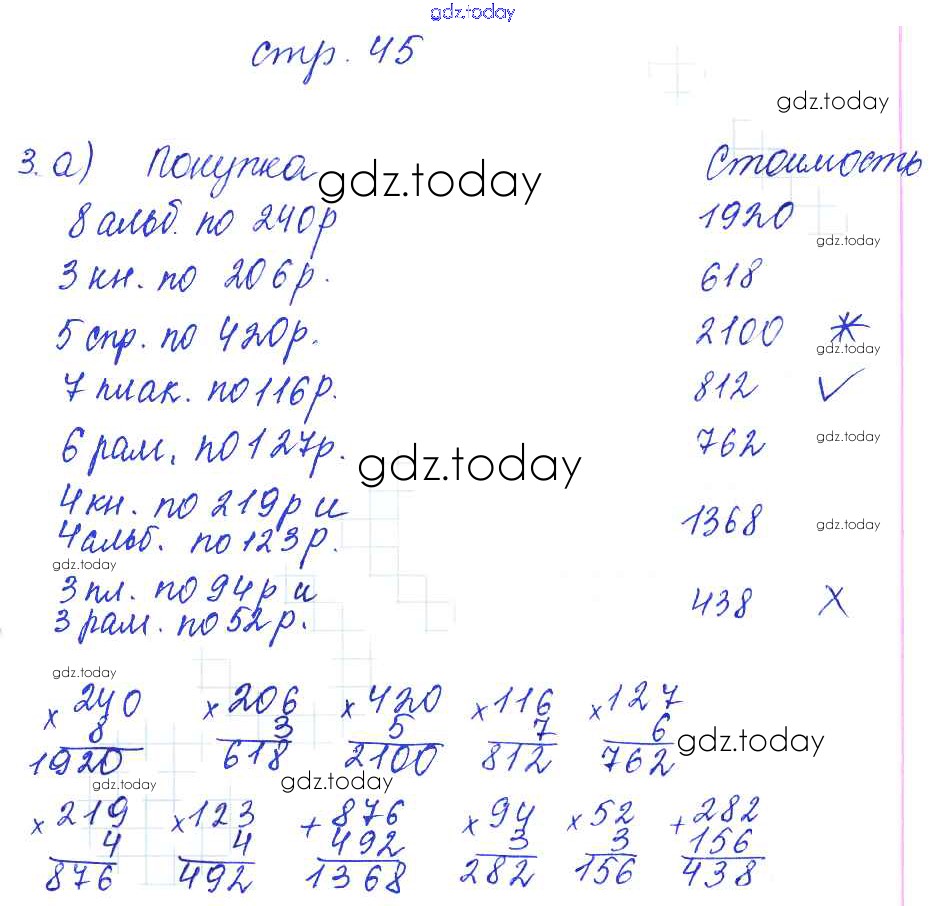 gdz.today
стр. 45
gdz.today
3. а) Покупка gdz.today Стоимость
8 альб. по 240р 1920
gdz.today
3 кн. по 206р. 618
5 спр. по 420р. 2100 *
gdz.today
7 плак. по 116р. 812 ✓
6 рам. по 127р. 762 gdz.today
gdz.today
4 кн. по 219р и
4 альб. по 123р. 1368 gdz.today
gdz.today
3 пл. по 94р и
3 рам. по 52р. 438 X
gdz.today
x 240 x 206 x 420 x 116 x 127
8 3 5 7 6
1920 618 2100 812 762 gdz.today
gdz.today gdz.today
x 219 x 123 + 876 x 94 x 52 + 282
4 4 492 3 3 156
876 492 1368 282 156 438